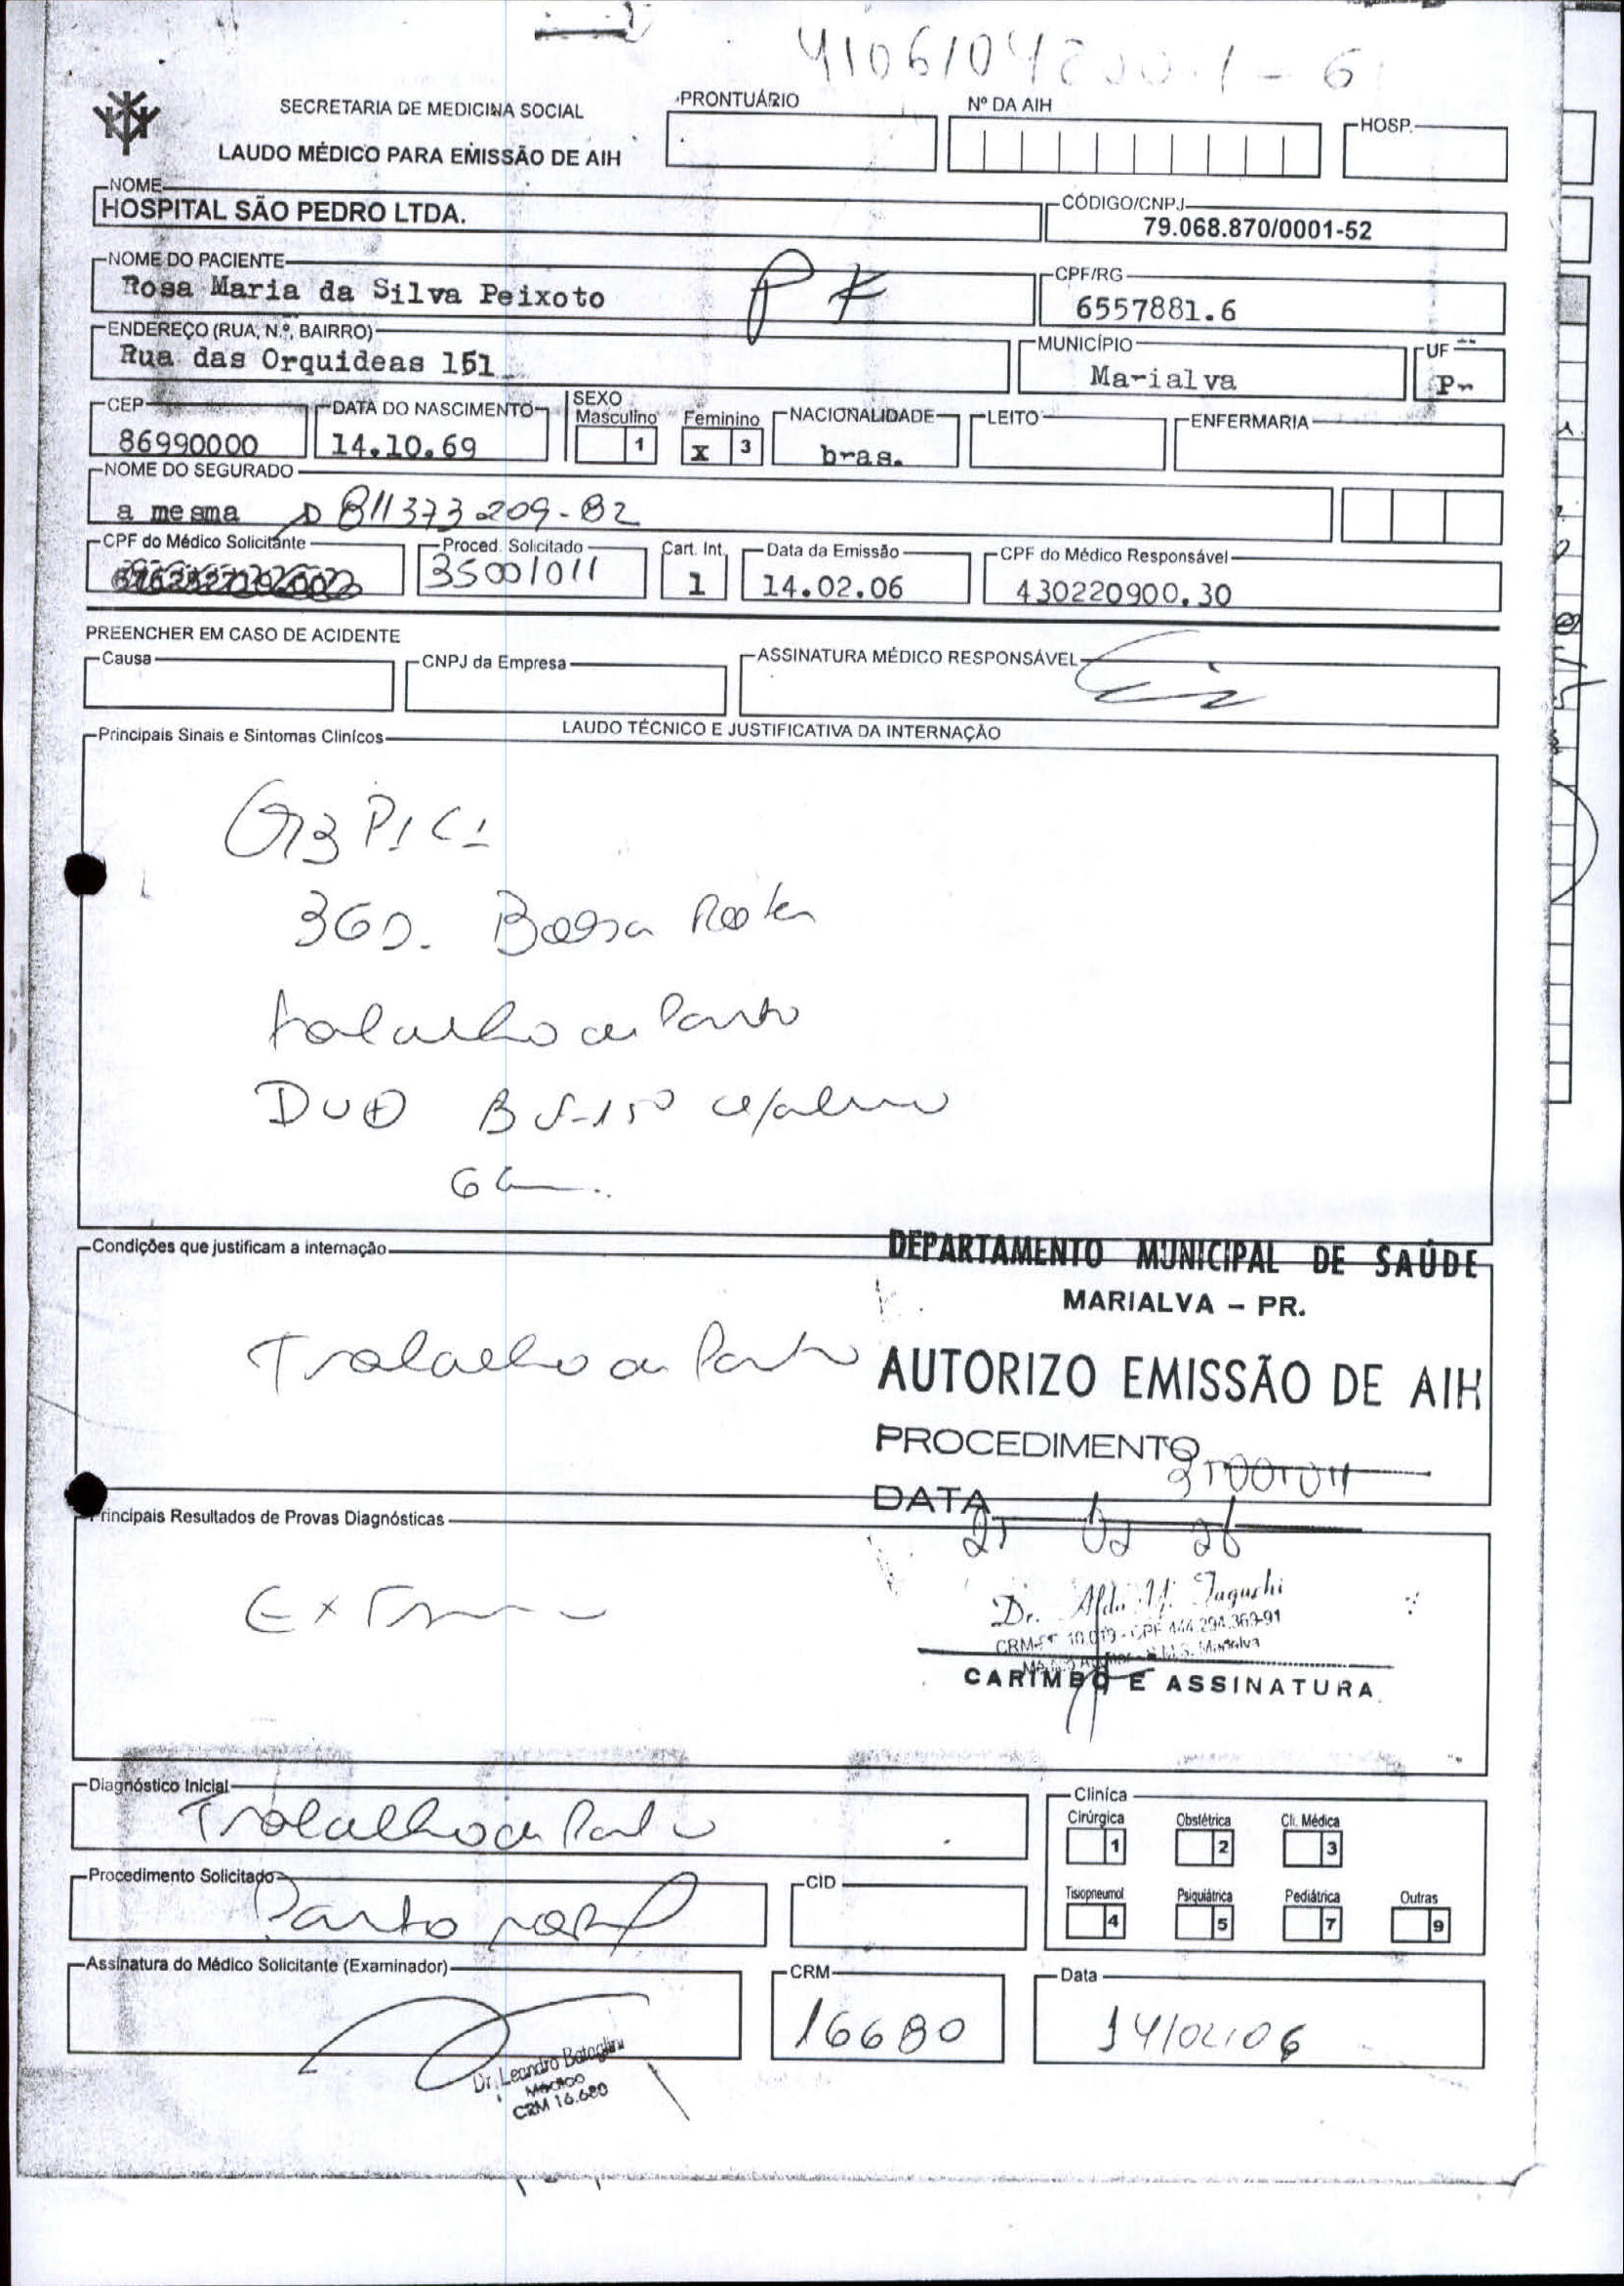 SECRETARIA DE MEDICINA SOCIAL
LAUDO MÉDICO PARA EMISSÃO DE AIH
PRONTUÁRIO
Nº DA AIH
HOSP.
NOME
HOSPITAL SÃO PEDRO LTDA.
CÓDIGO/CNPJ
79.068.870/0001-52
NOME DO PACIENTE
Rosa Maria da Silva Peixoto
CPF/RG
6557881.6
ENDEREÇO (RUA, N.º, BAIRRO)
Rua das Orquideas 151
MUNICÍPIO
Marialva
UF
Pr
CEP
86990000
DATA DO NASCIMENTO
14.10.69
SEXO
Masculino 1
Feminino x 3
NACIONALIDADE
bras.
LEITO
ENFERMARIA
NOME DO SEGURADO
a mesma 811373209-82
CPF do Médico Solicitante
Proced. Solicitado
35001011
Cart. Int.
1
Data da Emissão
14.02.06
CPF do Médico Responsável
430220900.30
PREENCHER EM CASO DE ACIDENTE
Causa
CNPJ da Empresa
ASSINATURA MÉDICO RESPONSÁVEL
LAUDO TÉCNICO E JUSTIFICATIVA DA INTERNAÇÃO
Principais Sinais e Sintomas Clinícos
G3 P1 C1
Bolsa Rota
trabalho de Parto
DUO
Condições que justificam a internação
DEPARTAMENTO MUNICIPAL DE SAÚDE
MARIALVA – PR.
Trabalho de Parto
AUTORIZO EMISSÃO DE AIH
PROCEDIMENTO
DATA
Principais Resultados de Provas Diagnósticas
Dr. Aldo Y. Taguchi
CARIMBO E ASSINATURA
Diagnóstico Inicial
Trabalho de Parto
Clinica
Cirúrgica 1
Obstétrica 2
Cli. Médica 3
Tisiopneumol 4
Psiquiátrica 5
Pediátrica 7
Outras 9
Procedimento Solicitado
Parto normal
CID
Assinatura do Médico Solicitante (Examinador)
CRM
16680
Data
14/02/06
Dr. Leandro Bataglini
Médico
CRM 16.680